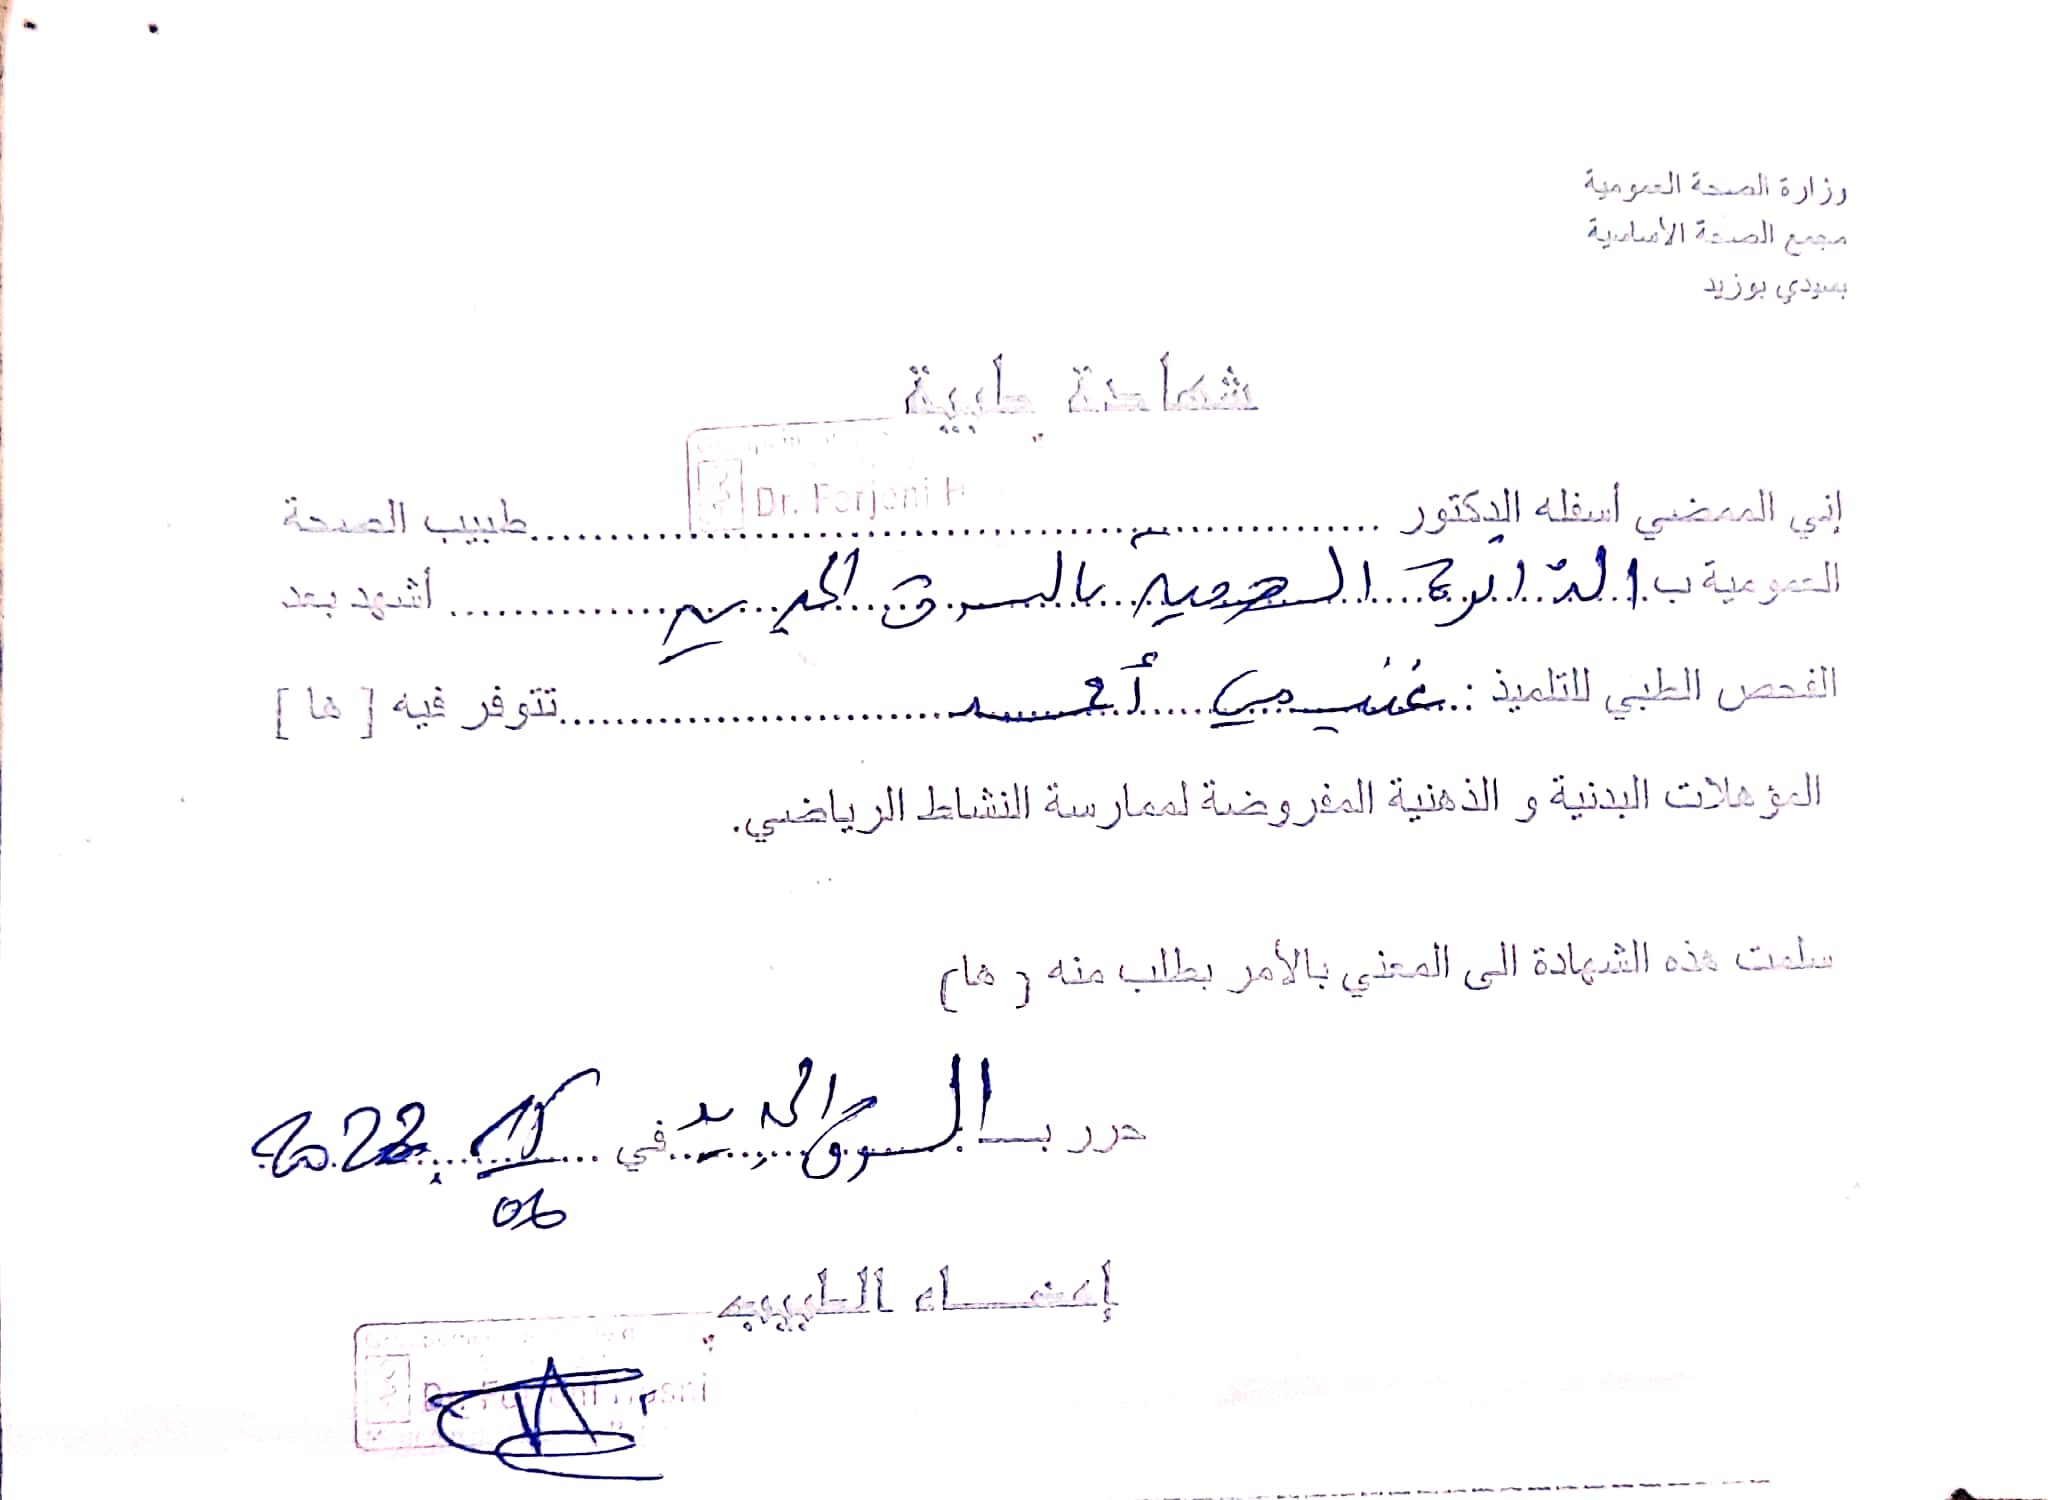 وزارة الصحة العمومية
مجمع الصحة الأساسية
بسيدي بوزيد
شهادة طبية
Dr. Forjoni H
إني الممضي أسفله الدكتور ........ طبيب الصحة
العمومية ب الدائرة الصحية بالسوق الجديد ........ أشهد بعد
الفحص الطبي للتلميذ : غنيمي أحمد ........ تتوفر فيه [ ها ]
المؤهلات البدنية و الذهنية المفروضة لممارسة النشاط الرياضي.
سلمت هذه الشهادة الى المعني بالأمر بطلب منه ( ها )
حرر بـ السوق الجديد في 06 2022
إمضاء الطبيب